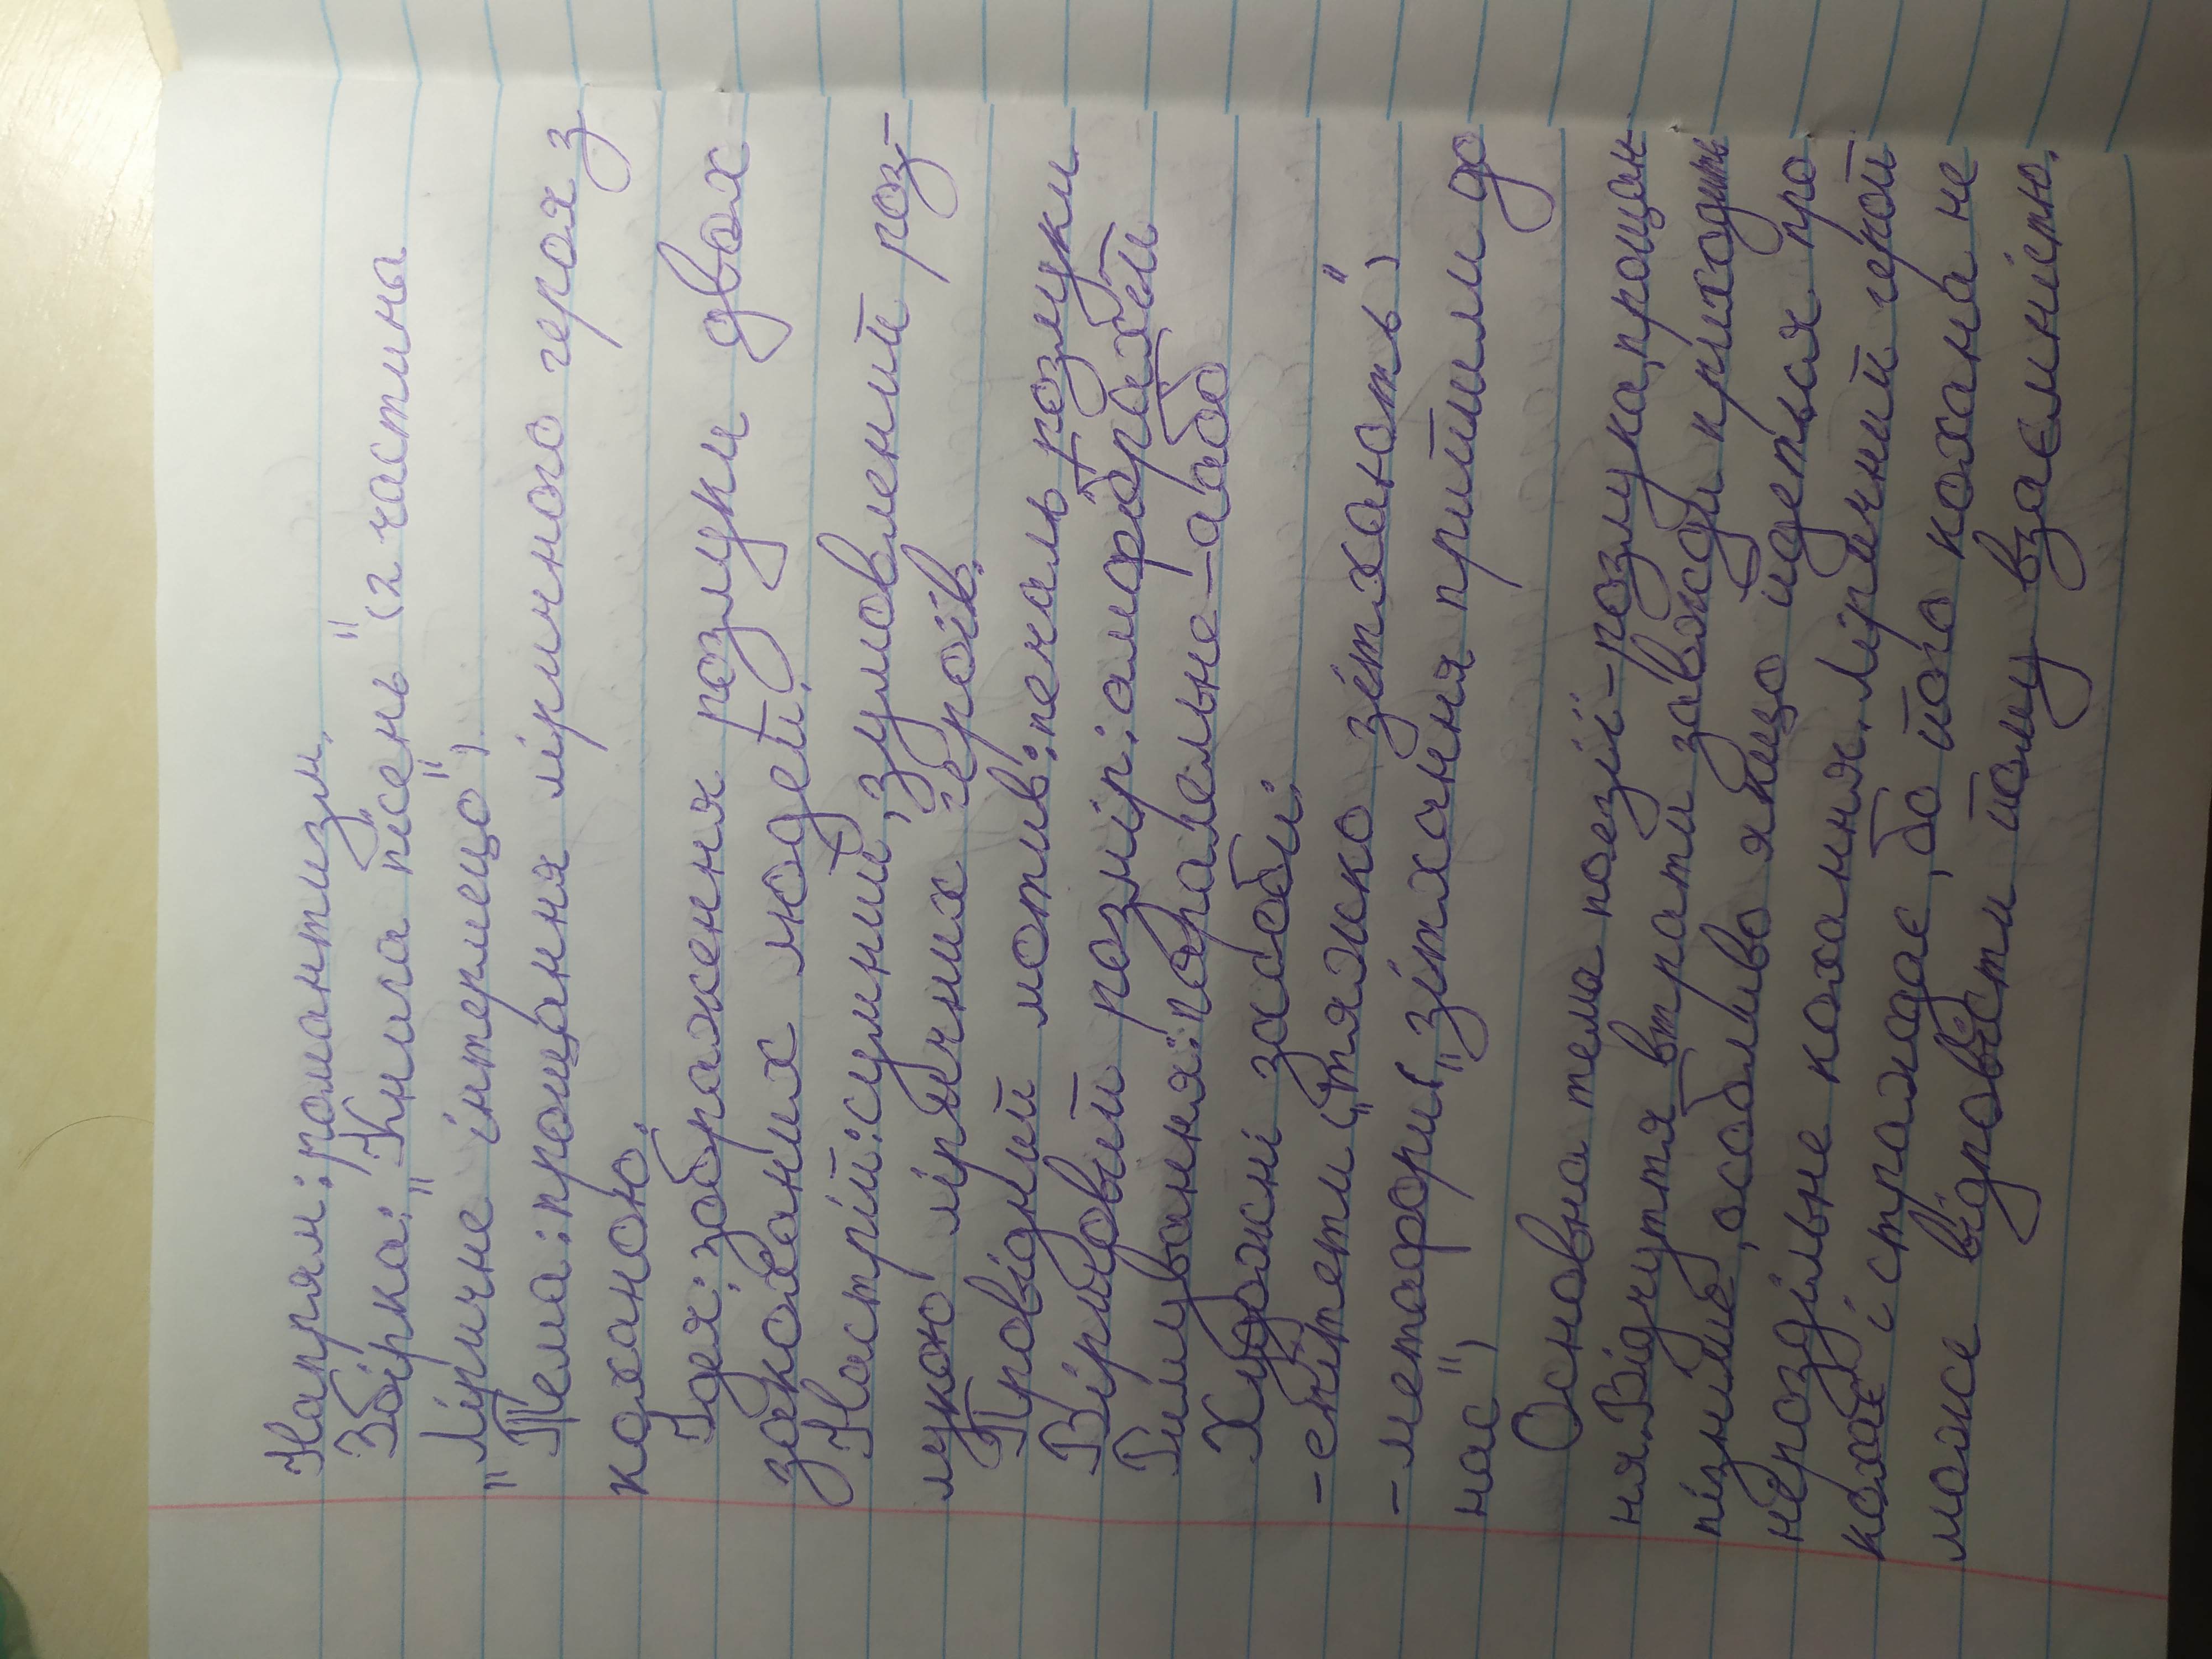 Напрям: романтизм.
Збірка: "Книга пісень" (2 частина
"Ліричне інтермецо").
Тема: прощання ліричного героя з
коханою.
Ідея: зображення розлуки двох
закоханих людей.
Настрій: сумний, зумовлений роз-
лукою ліричних героїв.
Провідний мотив: печаль розлуки
Віршовий розмір: амфібрахій
Римування: паралельне - аабб
Художні засоби:
- епітети („тяжко зітхають")
- метафори („зітхання прийшли до
нас")
Основна тема поезії - розлука, прощан-
ня. Відчуття втрати завжди приходить
пізніше, особливо якщо йдеться про
нероздільне кохання. Ліричний герой
кохає і страждає, бо його кохана не
може відповісти йому взаємністю.